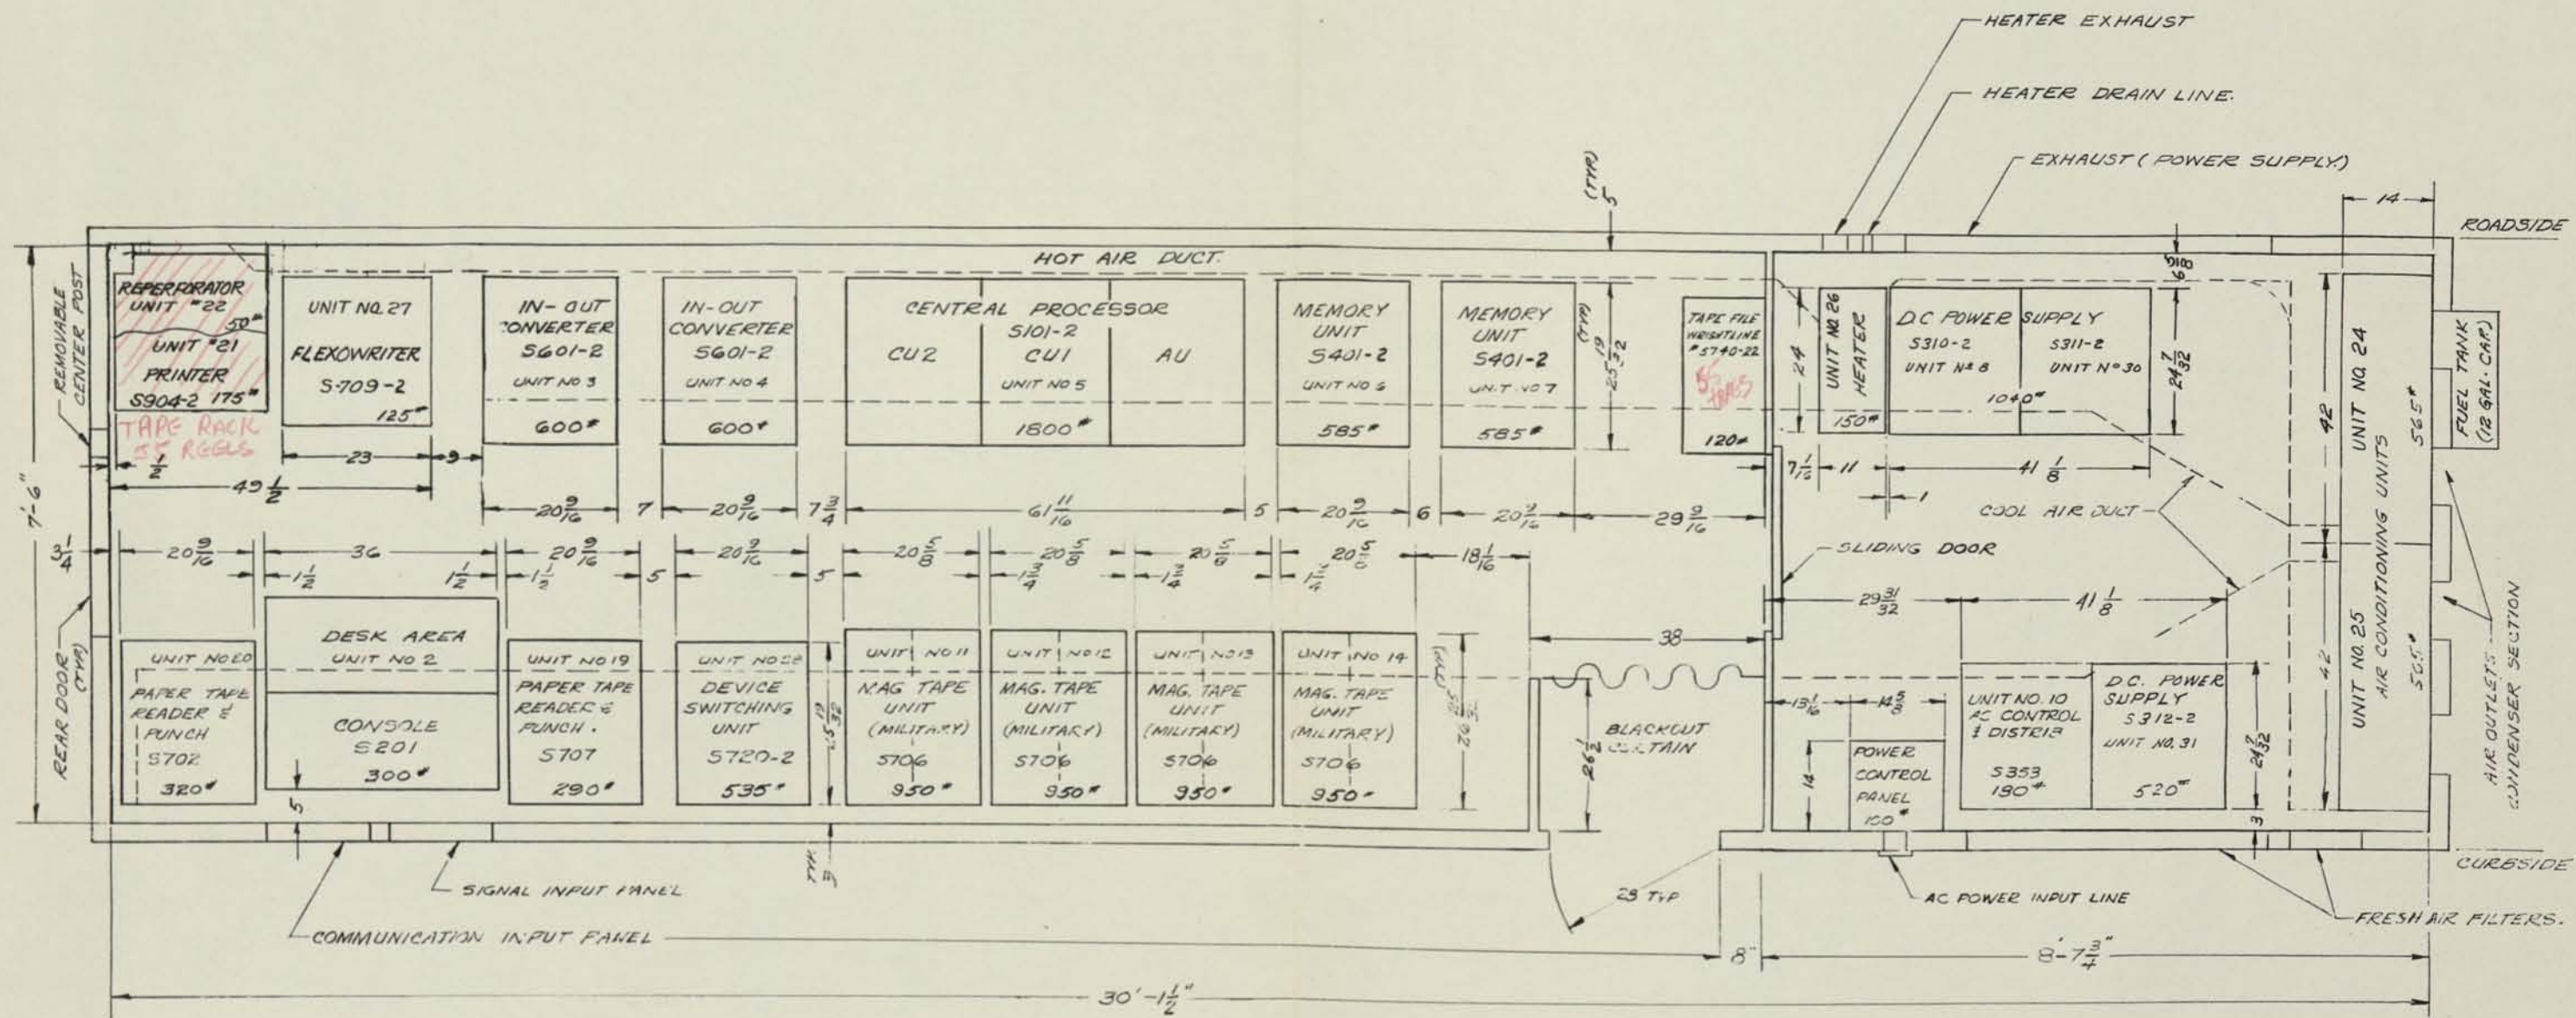 HEATER EXHAUST
HEATER DRAIN LINE.
EXHAUST (POWER SUPPLY)
14
ROADSIDE
(TYP)
5
HOT AIR DUCT.
REMOVABLE
CENTER POST
REPERFORATOR
UNIT #22
50#
UNIT #21
PRINTER
S904-2 175#
TAPE RACK
55 REELS
UNIT NO. 27
FLEXOWRITER
S-709-2
125#
IN-OUT
CONVERTER
S601-2
UNIT NO 3
600#
IN-OUT
CONVERTER
S601-2
UNIT NO 4
600#
CENTRAL PROCESSOR
S101-2
CU2 CU1 AU
UNIT NO 5
1800#
MEMORY
UNIT
S401-2
UNIT NO 6
585#
MEMORY
UNIT
S401-2
UNIT NO 7
585#
(TYP)
25 19/32
TAPE FILE
WRIGHTLINE
#5740-22
TRAYS
120#
24
UNIT NO. 26
HEATER
150#
D.C POWER SUPPLY
S310-2 S311-2
UNIT No 8 UNIT No 30
1040#
6 5/8
24 7/32
42
UNIT NO. 24
565#
FUEL TANK
(12 GAL. CAP.)
1/2
23
9
49 1/2
7 1/16
11
41 1/8
1
7'-6"
20 9/16
7
20 9/16
7 3/4
61 11/16
5
20 9/16
6
20 9/16
29 9/16
COOL AIR DUCT
SLIDING DOOR
3/4
20 9/16
36
20 9/16
20 9/16
20 5/8
20 5/8
20 5/8
20 5/8
18 1/16
1 1/2
1 1/2
1 1/2
5
5
1 3/4
1 3/4
1 3/4
29 31/32
41 1/8
38
AIR CONDITIONING UNITS
UNIT NO. 25
565#
42
REAR DOOR
(TYP)
UNIT NO 20
PAPER TAPE
READER &
PUNCH
S702
320#
DESK AREA
UNIT NO 2
CONSOLE
S201
300#
5
UNIT NO 19
PAPER TAPE
READER &
PUNCH.
S707
290#
DEVICE
SWITCHING
UNIT
S720-2
535#
25 19/32
UNIT NO 11
MAG TAPE
UNIT
(MILITARY)
S706
950#
UNIT NO 12
MAG. TAPE
UNIT
(MILITARY)
S706
950#
UNIT NO 13
MAG. TAPE
UNIT
(MILITARY)
S706
950#
UNIT NO 14
MAG. TAPE
UNIT
(MILITARY)
S706
950#
(TYP)
26 1/2
BLACKOUT
CURTAIN
13 1/16
14 5/8
14
POWER
CONTROL
PANEL
100#
UNIT NO. 10
AC CONTROL
& DISTRIB
S353
190#
D.C. POWER
SUPPLY
S312-2
UNIT NO. 31
520#
24 7/32
3
AIR OUTLETS
CONDENSER SECTION
CURBSIDE
TYP.
3
SIGNAL INPUT PANEL
COMMUNICATION INPUT PANEL
28 TYP
AC POWER INPUT LINE
FRESH AIR FILTERS.
8"
8'-7 3/4"
30'-1 1/2"